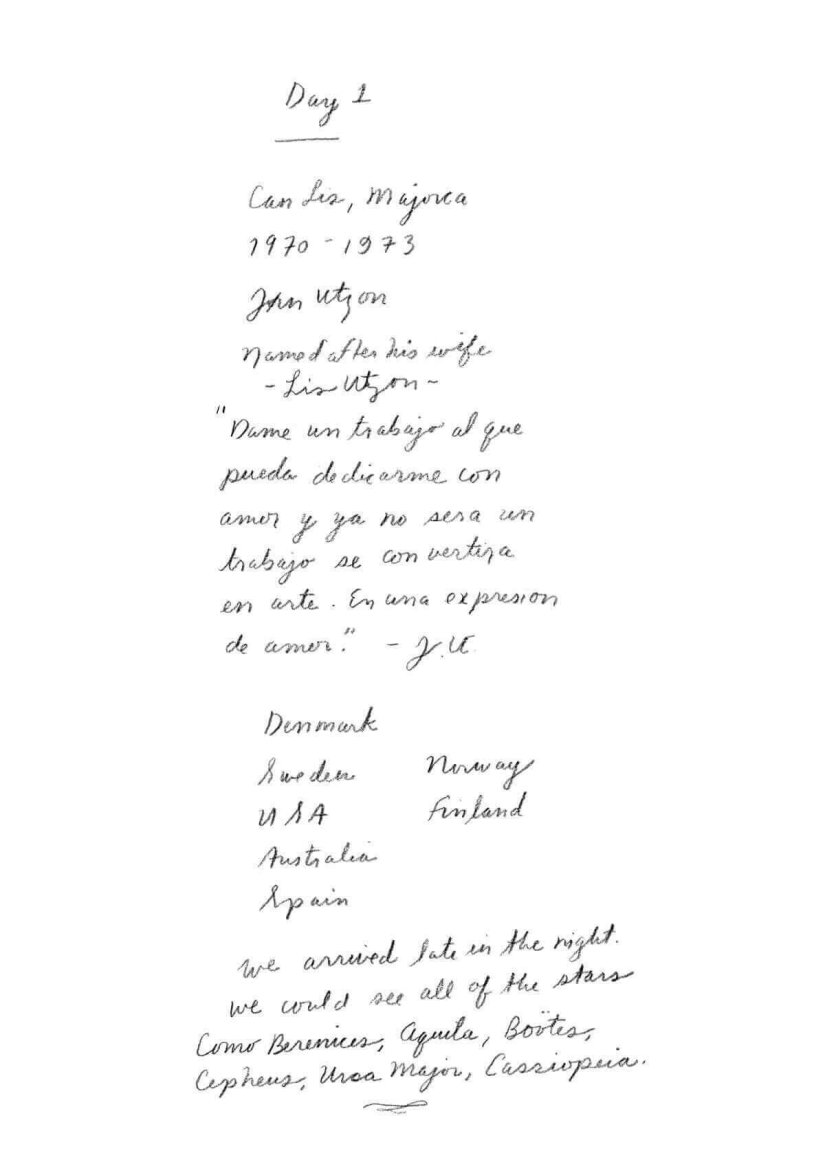 Day 1
Can Lis, Majorca
1970 - 1973
Jørn Utzon
Named after his wife
- Lis Utzon -
"Dame un trabajo al que
pueda dedicarme con
amor y ya no sera un
trabajo se convertira
en arte. En una expresion
de amor." - J.U.
Denmark
Sweden Norway
USA Finland
Australia
Spain
We arrived late in the night.
We could see all of the stars
Coma Berenices, Aquila, Boötes,
Cepheus, Ursa Major, Cassiopeia.